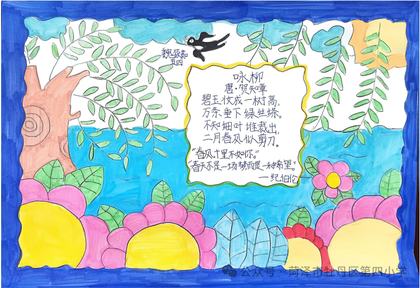 咏柳
唐·贺知章
碧玉妆成一树高,
万条垂下绿丝绦。
不知细叶谁裁出,
二月春风似剪刀。
"春风十里不如你。"
"春天不是一场梦而是一种希望"
——纪伯伦
公众号 · 菏泽市牡丹区第四小学